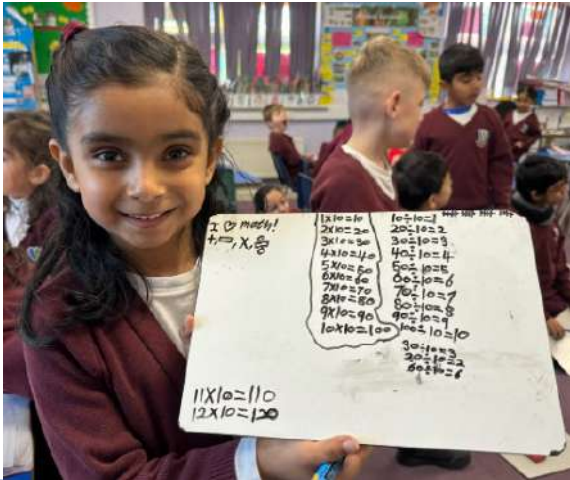 I ♡ math!
+, -, x, ÷
1x10=10
2x10=20
3x10=30
4x10=40
5x10=50
6x10=60
7x10=70
8x10=80
9x10=90
10x10=100
10÷10=1
20÷10=2
30÷10=3
40÷10=4
50÷10=5
60÷10=6
70÷10=7
80÷10=8
90÷10=9
100÷10=10
30÷10=3
20÷10=2
60÷10=6
11x10=110
12x10=120